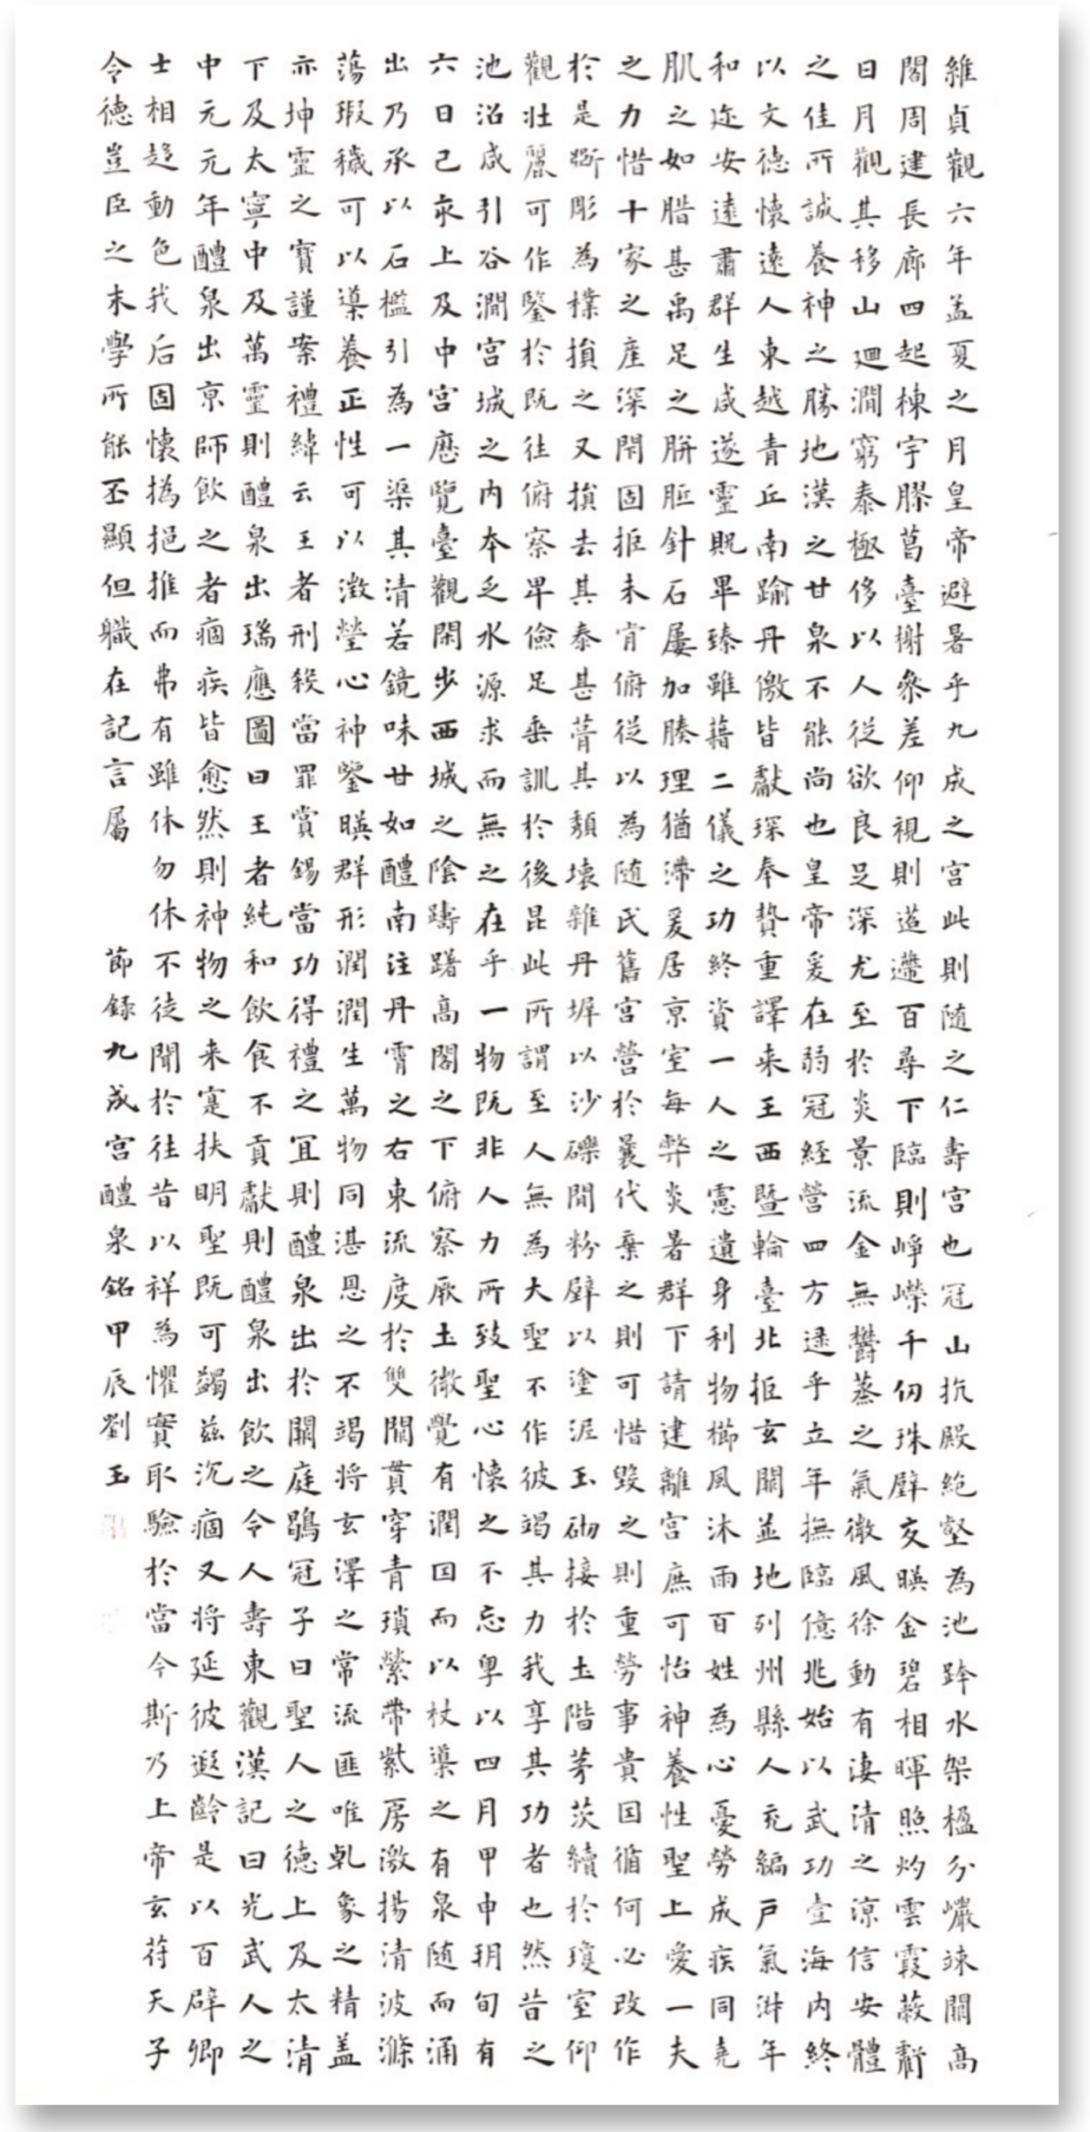 維貞觀六年孟夏之月皇帝避暑乎九成之宮此則随之仁壽宮也冠山抗殿絶壑為池跨水架楹分巖竦闕高
閣周建長廊四起棟宇膠葛臺榭叅差仰視則迢遰百尋下臨則崢嶸千仞珠壁交暎金碧相暉照灼雲霞蔽虧
日月觀其移山廻澗窮泰極侈以人從欲良足深尤至於炎景流金無欝蒸之氣微風徐動有淒清之涼信安體
之佳所誠養神之勝地漢之甘泉不能尚也皇帝爰在弱冠經營四方逮乎立年撫臨億兆始以武功壹海内終
以文德懷遠人東越青丘南踰丹儌皆獻琛奉贄重譯来王西暨輪臺北拒玄闕並地列州縣人充編戶氣淑年
和迩安遠肅群生咸遂靈貺畢臻雖藉二儀之功終資一人之慮遺身利物櫛風沐雨百姓為心憂勞成疾同堯
肌之如腊甚禹足之胼胝針石屢加腠理猶滯爰居京室每弊炎暑群下請建離宮庶可怡神養性聖上愛一夫
之力惜十家之產深閇固拒未肯俯從以為随氏舊宮營於曩代棄之則可惜毀之則重勞事貴因循何必改作
於是斲彫為樸損之又損去其泰甚葺其頹壞雜丹墀以沙礫間粉壁以塗泥玉砌接於土階茅茨續於瓊室仰
觀壯麗可作鑒於既往俯察卑儉足垂訓於後昆此所謂至人無為大聖不作彼竭其力我享其功者也然昔之
池沼咸引谷澗宮城之内本乏水源求而無之在乎一物既非人力所致聖心懷之不忘粤以四月甲申朔旬有
六日己亥上及中宮歷覽臺觀閑步西城之陰躊躇高閣之下俯察厥土微覺有潤因而以杖導之有泉随而涌
出乃承以石檻引為一渠其清若鏡味甘如醴南注丹霄之右東流度於雙闕貫穿青瑣縈帶紫房激揚清波滌
蕩瑕穢可以導養正性可以澂瑩心神鑒暎群形潤潤生萬物同湛恩之不竭将玄澤之常流匪唯乹象之精盖
亦坤靈之寶謹案禮緯云王者刑殺當罪賞錫當功得禮之宜則醴泉出於闕庭鶡冠子曰聖人之德上及太清
下及太寧中及萬靈則醴泉出瑞應圖曰王者純和飲食不貢獻則醴泉出飲之令人壽東觀漢記曰光武人之
中元元年醴泉出京師飲之者痼疾皆愈然則神物之来寔扶明聖既可蠲茲沉痼又将延彼遐齡是以百辟卿
士相趍動色我后固懷撝挹推而弗有雖休勿休不徒聞於往昔以祥為懼實取驗於當今斯乃上帝玄苻天子
令德豈臣之末學所能丕顯但職在記言屬 節録九成宮醴泉銘甲辰劉玉